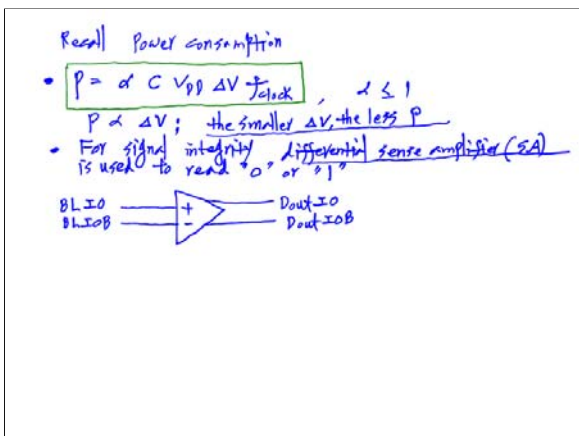 Recall Power consumption
• P = α C VDD ΔV fclock , α ≤ 1
P ∝ ΔV ; the smaller ΔV, the less P
• For signal integrity differential sense amplifier (SA)
is used to read "0" or "1"
BLIO + DoutIO
BLIOB - DoutIOB